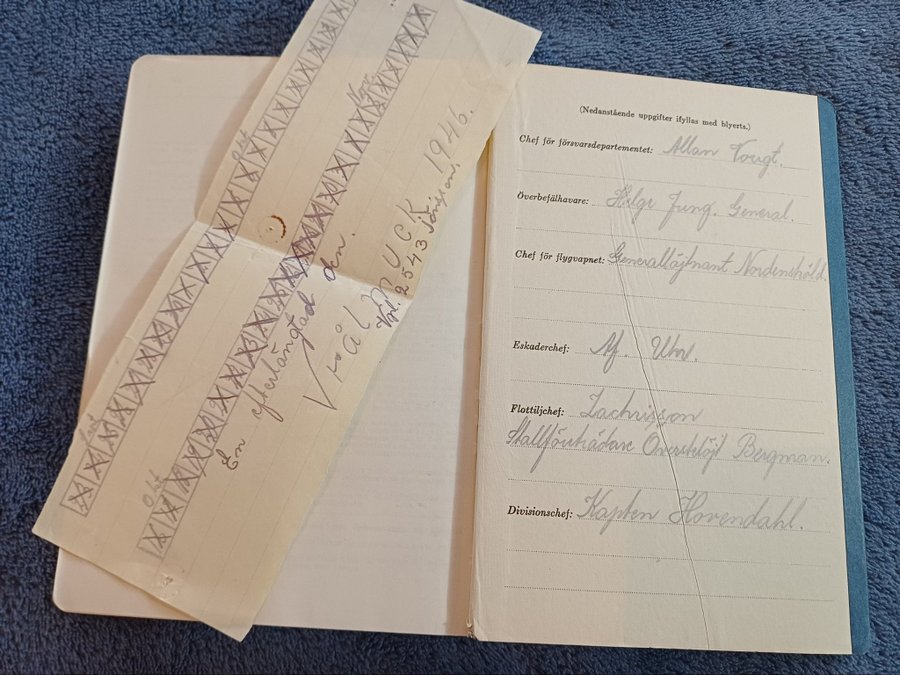 Sept
Okt
Okt
Nov.
En efterlängtad den.
Vrål
MUCK 1946.
Vpl. 2543 Jönsson.
(Nedanstående uppgifter ifyllas med blyerts.)
Chef för försvarsdepartementet: Allan Vougt.
Överbefälhavare: Helge Jung. General.
Chef för flygvapnet: Generallöjtnant Nordensköld.
Eskaderchef: Af. Uhr.
Flottiljchef: Zachrisson
Ställföreträdare Överstelöjt Bergman.
Divisionschef: Kapten Hovendahl.